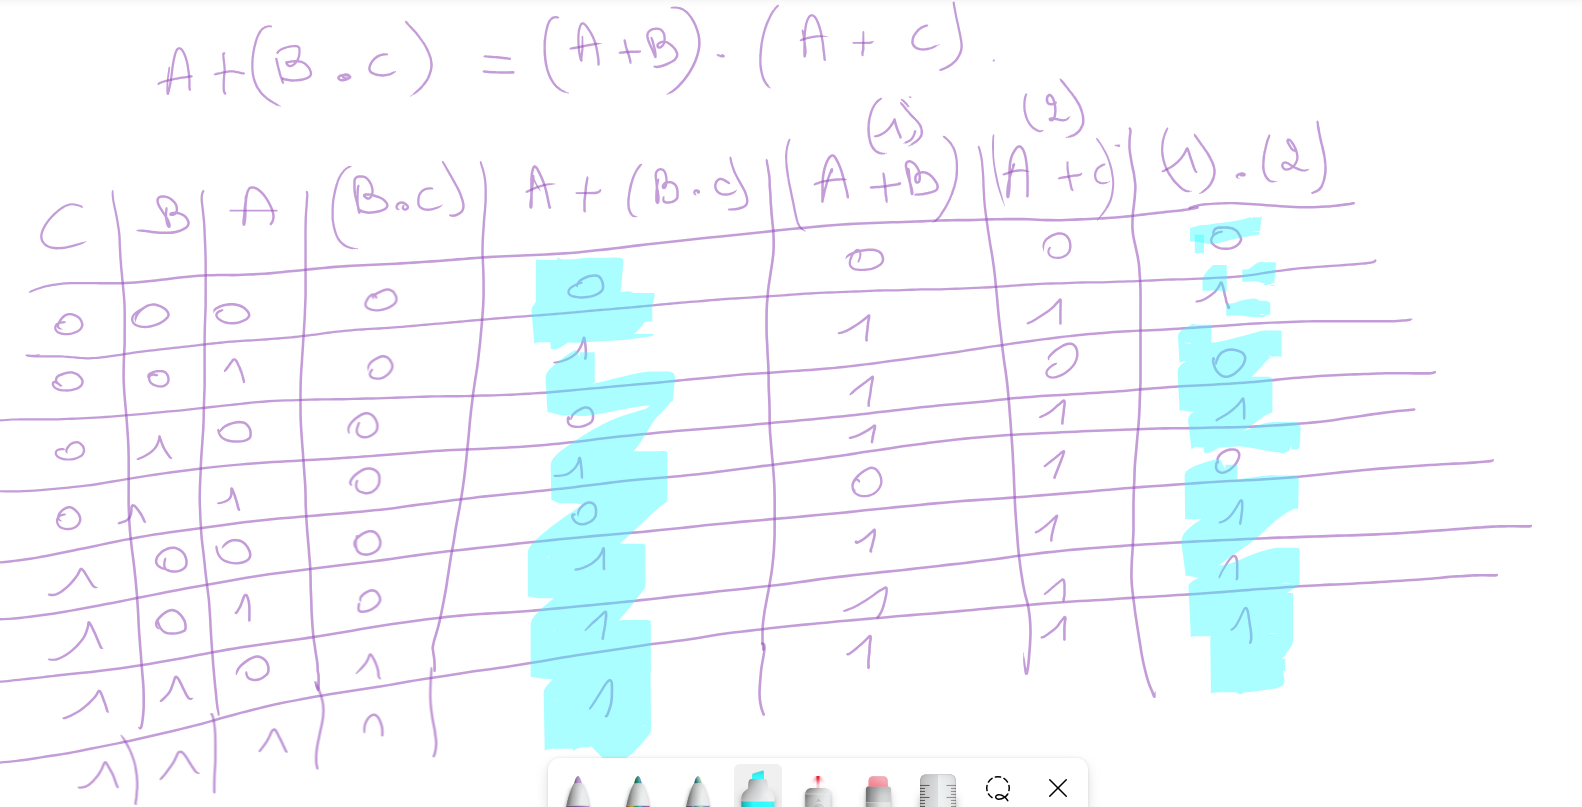 A+(B.C) = (A+B).(A+C).
(1) (2)
C B A (B.C) A+(B.C) (A+B) (A+C) (1).(2)
0 0 0 0 0 0 0 0
0 0 1 0 1 1 1 1
0 1 0 0 0 1 0 0
0 1 1 0 1 1 1 1
1 0 0 0 0 0 1 0
1 0 1 0 1 1 1 1
1 1 0 1 1 1 1 1
1 1 1 1 1 1 1 1